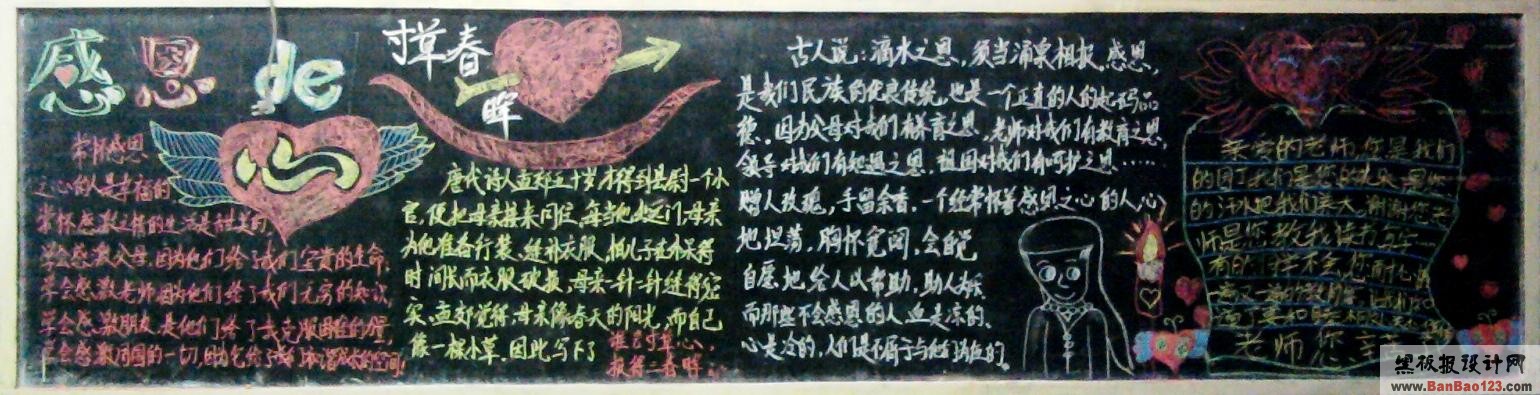 感恩 de
心
常怀感恩
之心的人是幸福的
常怀感激之情的生活是甜美的
学会感激父母,因为他们给了我们宝贵的生命,
学会感激老师,因为他们给了我们无穷的知识,
学会感激朋友,是他们给了我克服困难的力量,
学会感激周围的一切,
寸草春
晖
唐代诗人孟郊五十岁才得到县尉一个小
官,便把母亲接来同住,每当他出远门,母亲
为他准备行装、缝补衣服,
时间长而衣服破损,母亲一针一针缝得密
实,孟郊觉得,母亲像春天的阳光,而自己
像一棵小草,因此写下了
谁言寸草心,
报得三春晖。
古人说:滴水之恩,须当涌泉相报。感恩,
是我们民族的优良传统,也是一个正直的人的起码品
德。因为父母对我们有养育之恩,老师对我们有教育之恩,
领导对我们有知遇之恩,祖国对我们有呵护之恩……
赠人玫瑰,手留余香。一个经常怀着感恩之心的人,心
地坦荡,胸怀宽阔,会自觉
自愿地给人以帮助,助人为乐
而那些不会感恩的人血是凉的、
心是冷的,人们是不屑于与他为伍的。
亲爱的老师,您是我们
的园丁我们是您的花朵,是您
的汗水把我们养大。谢谢您老
师是您教我读书写字
老师您
黑板报设计网
www.BanBao123.com